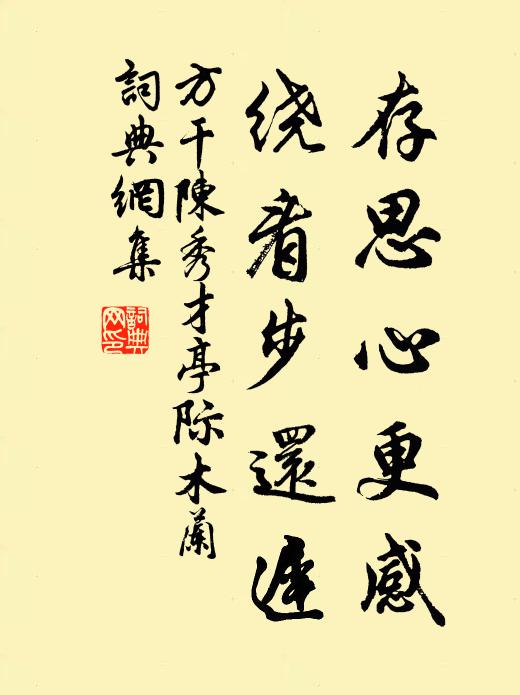 存思心更感
绕看步還遲
方干陳秀才亭际木蘭
詞典網集
詞典网印